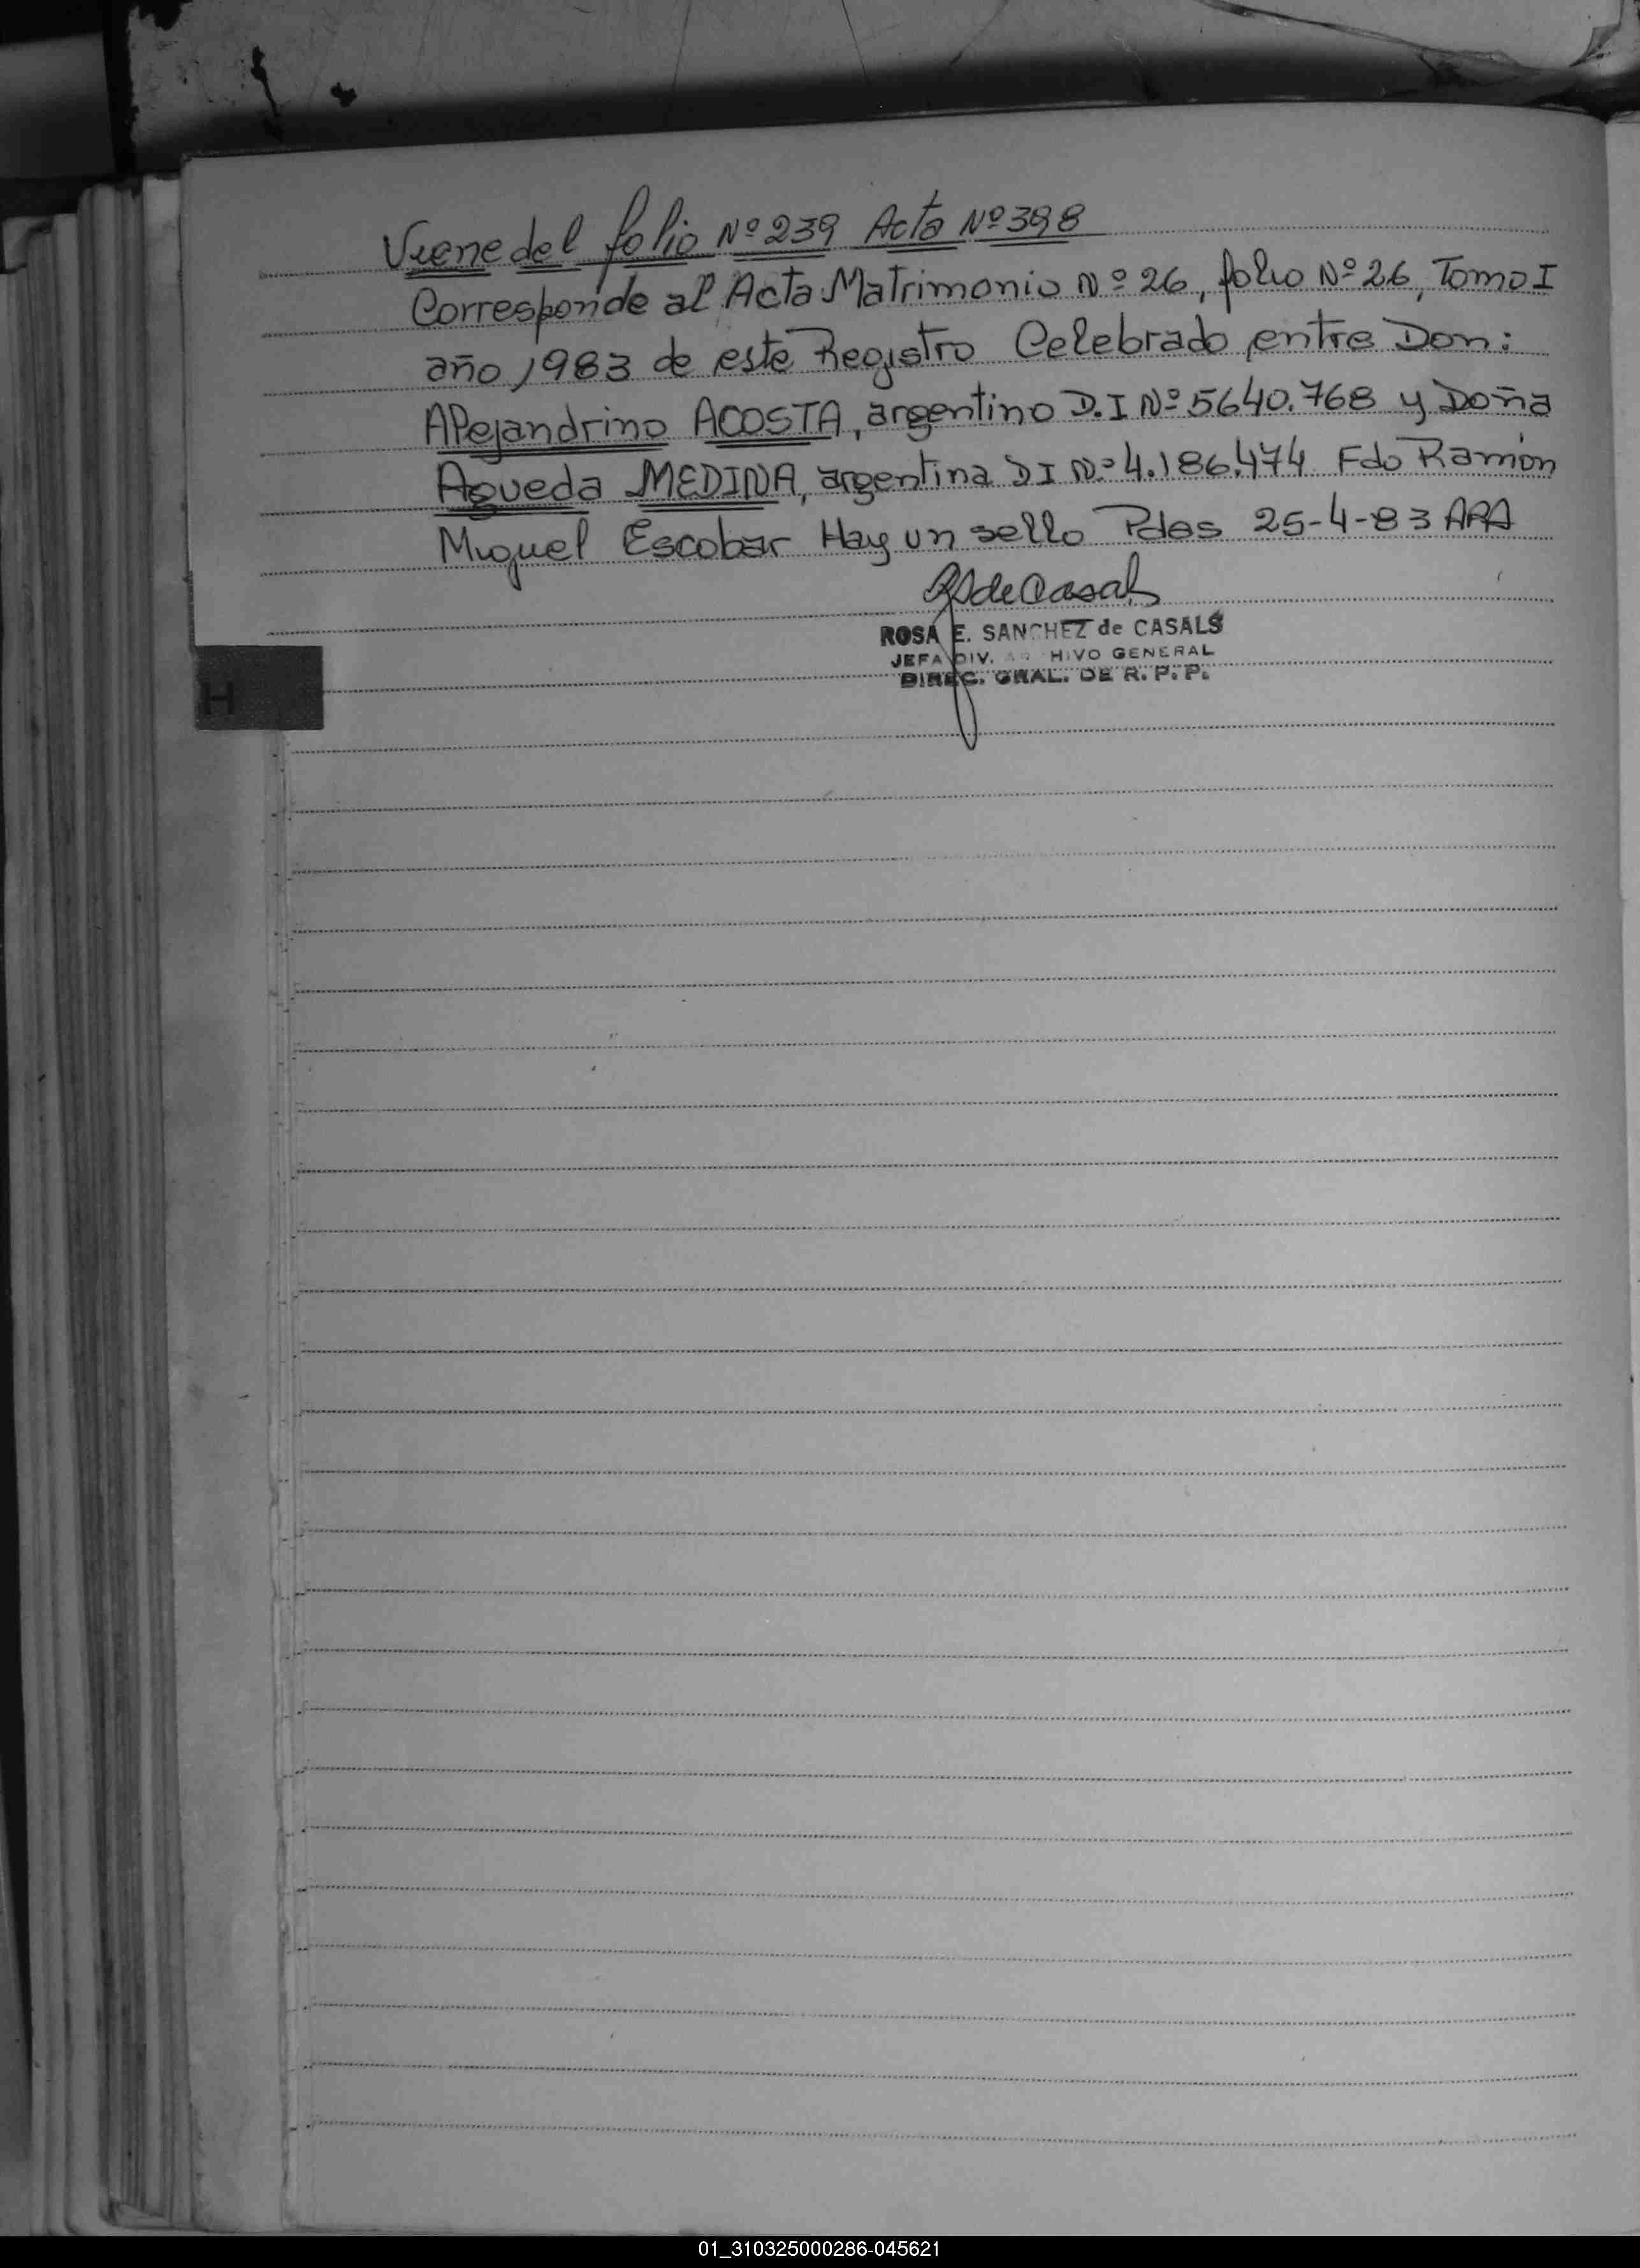 Viene del folio Nº 239 Acta Nº 398
Corresponde al Acta Matrimonio Nº 26, folio Nº 26, Tomo I
año 1983 de este Registro Celebrado entre Don:
Alejandrino ACOSTA, argentino D.I Nº 5640.768 y Doña
Agueda MEDINA, argentina DI Nº 4.186.474 Fdo Ramón
Miguel Escobar Hay un sello Pdas 25-4-83 ARA
RS de Casals
ROSA E. SANCHEZ de CASALS
JEFA DIV. ARCHIVO GENERAL
DIREC. GRAL. DE R. P. P.
H
01_310325000286-045621